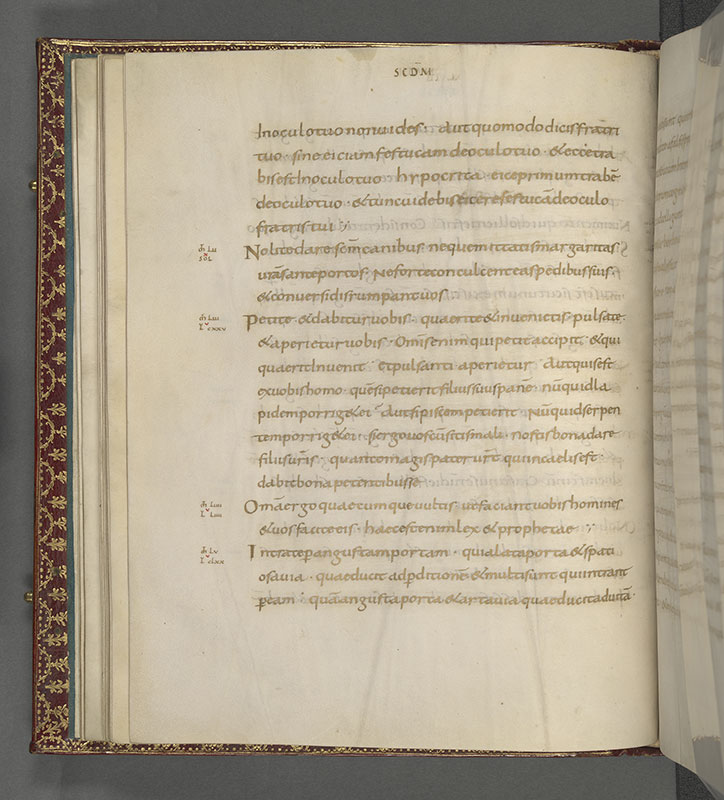 SCDM
Inoculo tuo non uides · Aut quomodo dicis fratri
tuo · sine eiciam festucam de oculo tuo · & ecce tra
bis est Inoculo tuo · hypocrita eice primum trabē
de oculo tuo · & tunc uidebis eicere festucā de oculo
fratris tui
Nolite dare sc̄m canibus neque mittatis margaritas
ur̄as ante porcos · Ne forte conculcent eas pedibus suis
& conuersi disrumpant uos
Petite & dabitur uobis · quaerite & inuenietis · pulsate
& aperietur uobis · Omīs enim qui petit accipit · & qui
quaerit Inuenit · et pulsanti aperietur · Aut quis est
ex uobis homo · quē si petierit filius suus panē · nūquid la
pidem porriget ei · Aut si piscem petierit · Nūquid serpen
tem porriget ei · si ergo uos cū sitis mali · nostis bona dare
filiis ur̄is · quanto magis pater ur̄ qui in caelis est
dabit bona petentibus se
Omā ergo quaecumque uultis ut faciant uobis homines
& uos facite eis · haec est enim lex & prophetae
Intrate p̄ angustam portam · quia lata porta & spati
osa uia · quae ducit ad p̄ditionē & multi sunt qui intrant
p̄ eam · quā angusta porta & arta uia quae ducit ad uitā